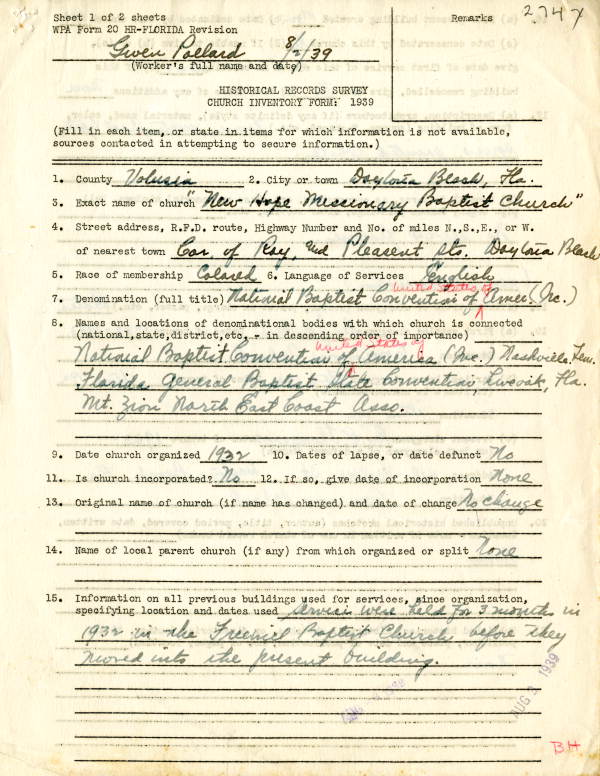 Sheet 1 of 2 sheets
WPA Form 20 HR-FLORIDA Revision
Remarks
2747
Gwen Pollard 8/2/39
(Worker's full name and date)
HISTORICAL RECORDS SURVEY
CHURCH INVENTORY FORM: 1939
(Fill in each item, or state in items for which information is not available,
sources contacted in attempting to secure information.)
1. County Volusia 2. City or town Daytona Beach, Fla.
3. Exact name of church "New Hope Missionary Baptist Church"
4. Street address, R.F.D. route, Highway Number and No. of miles N.,S.,E., or W.
of nearest town Cor. of Ray, and Pleasent sts. Daytona Beach
5. Race of membership Colored 6. Language of Services English
united states of
7. Denomination (full title) National Baptist Convention of Amer. (Inc.)
8. Names and locations of denominational bodies with which church is connected
(national, state, district, etc. - in descending order of importance)
united states of
National Baptist Convention of America (Inc.) Nashville, Tenn.
Florida General Baptist State Convention, Liveoak, Fla.
Mt. Zion North East Coast Asso.
9. Date church organized 1932 10. Dates of lapse, or date defunct No
11. Is church incorporated? No 12. If so, give date of incorporation None
13. Original name of church (if name has changed) and date of change No change
14. Name of local parent church (if any) from which organized or split None
15. Information on all previous buildings used for services, since organization,
specifying location and dates used Services were held for 3 months in
1932 in the Freewill Baptist Church before they
moved into the present building.
AUG 2 1939
BH